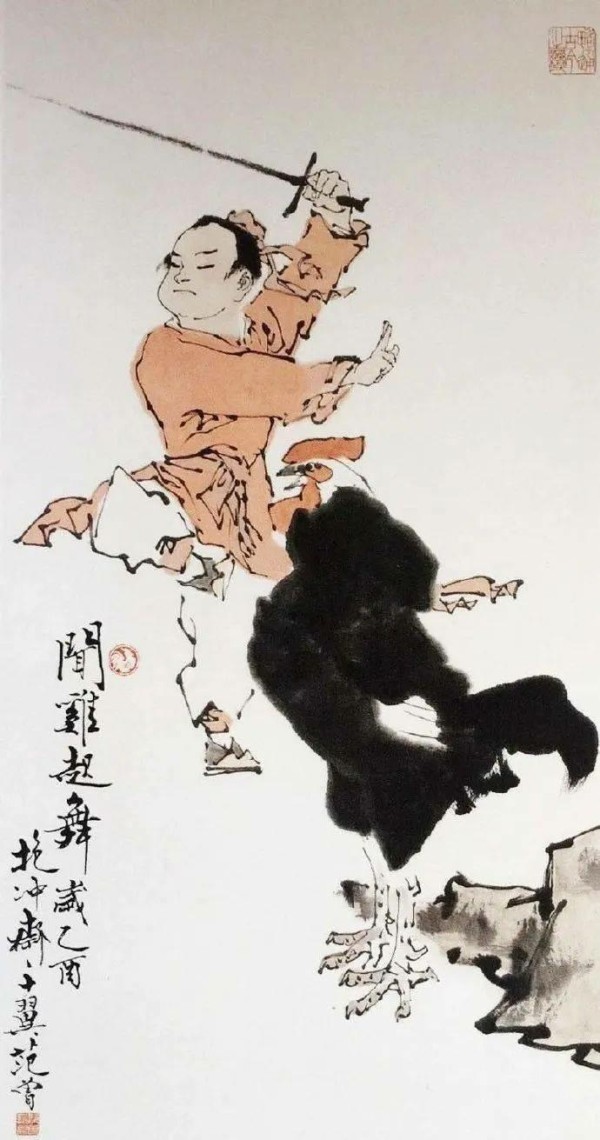 聞雞起舞
歲乙酉
抱冲齋十翼范曾